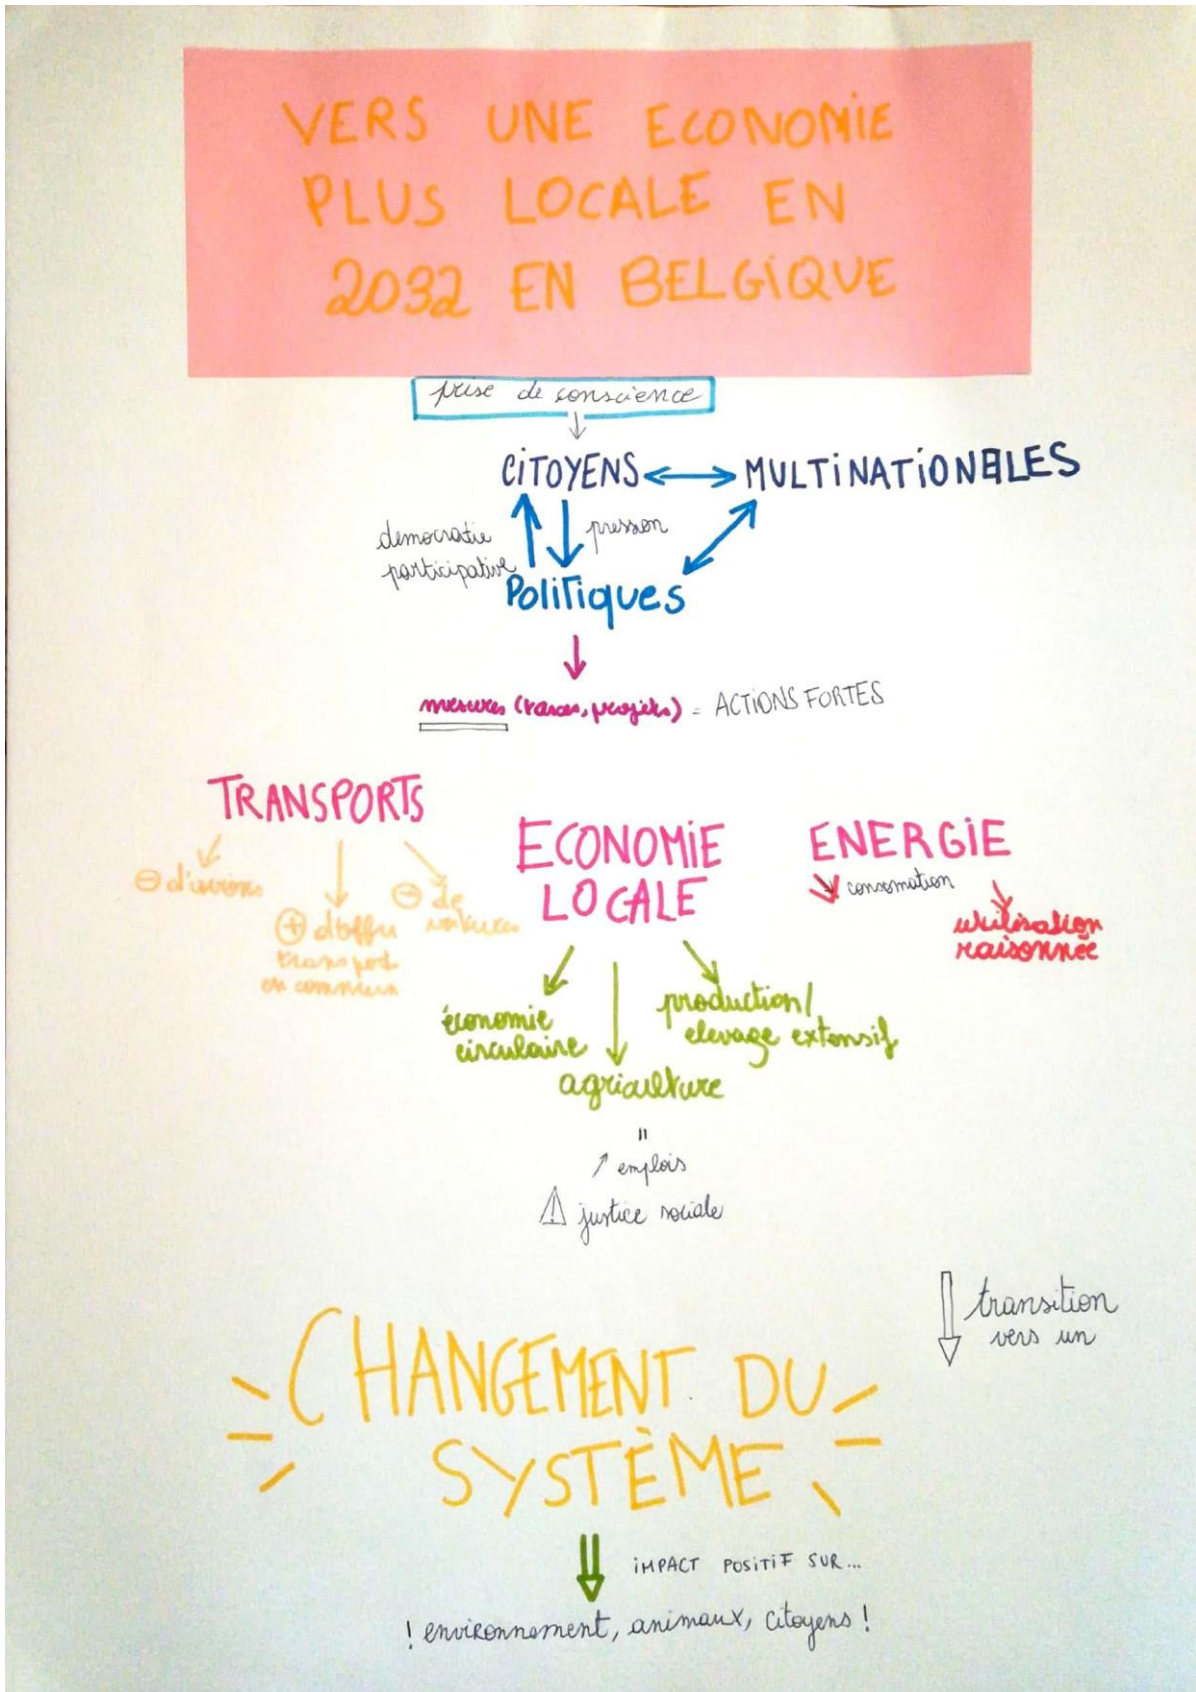 VERS UNE ECONOMIE
PLUS LOCALE EN
2032 EN BELGIQUE
prise de conscience
CITOYENS ↔ MULTINATIONALES
democratie
participative
pression
Politiques
mesures (taxes, projets) = ACTIONS FORTES
TRANSPORTS
⊖ d'avions
⊕ d'offre
transport
en commun
⊖ de
voitures
ECONOMIE
LOCALE
économie
circulaire
agriculture
production/
elevage extensif
ENERGIE
↘ consomation
utilisation
raisonnée
=
↗ emplois
⚠ justice sociale
transition
vers un
CHANGEMENT DU
SYSTÈME
IMPACT POSITIF SUR...
! environnement, animaux, citoyens !